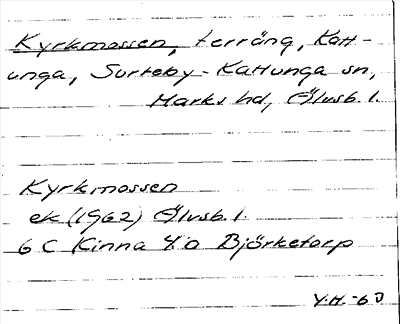 Kyrkmossen, terräng, Katt-
unga, Surteby-Kattunga sn,
Marks hd, Älvsb. l.
Kyrkmossen
ek (1962) Älvsb. l.
6 C Kinna 4 a Björketorp